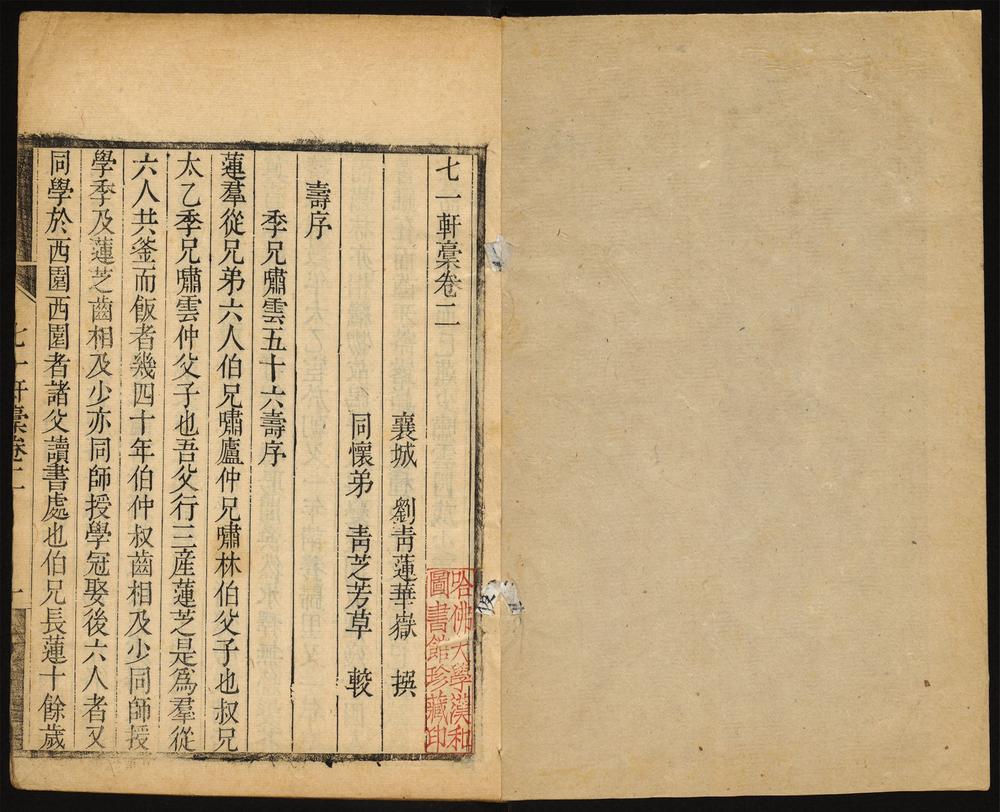 七一軒藁卷二
襄城 劉青蓮華嶽 撰
同懷弟 青芝芳草 較
壽序
季兄嘯雲五十六壽序
蓮羣從兄弟六人伯兄嘯廬仲兄嘯林伯父子也叔兄
太乙季兄嘯雲仲父子也吾父行三産蓮芝是爲羣從
六人共釜而飯者幾四十年伯仲叔齒相及少同師授
學季及蓮芝齒相及少亦同師授學冠娶後六人者又
同學於西園西園者諸父讀書處也伯兄長蓮十餘歲
七一軒藁卷二
一
哈佛大學漢和
圖書館珍藏印